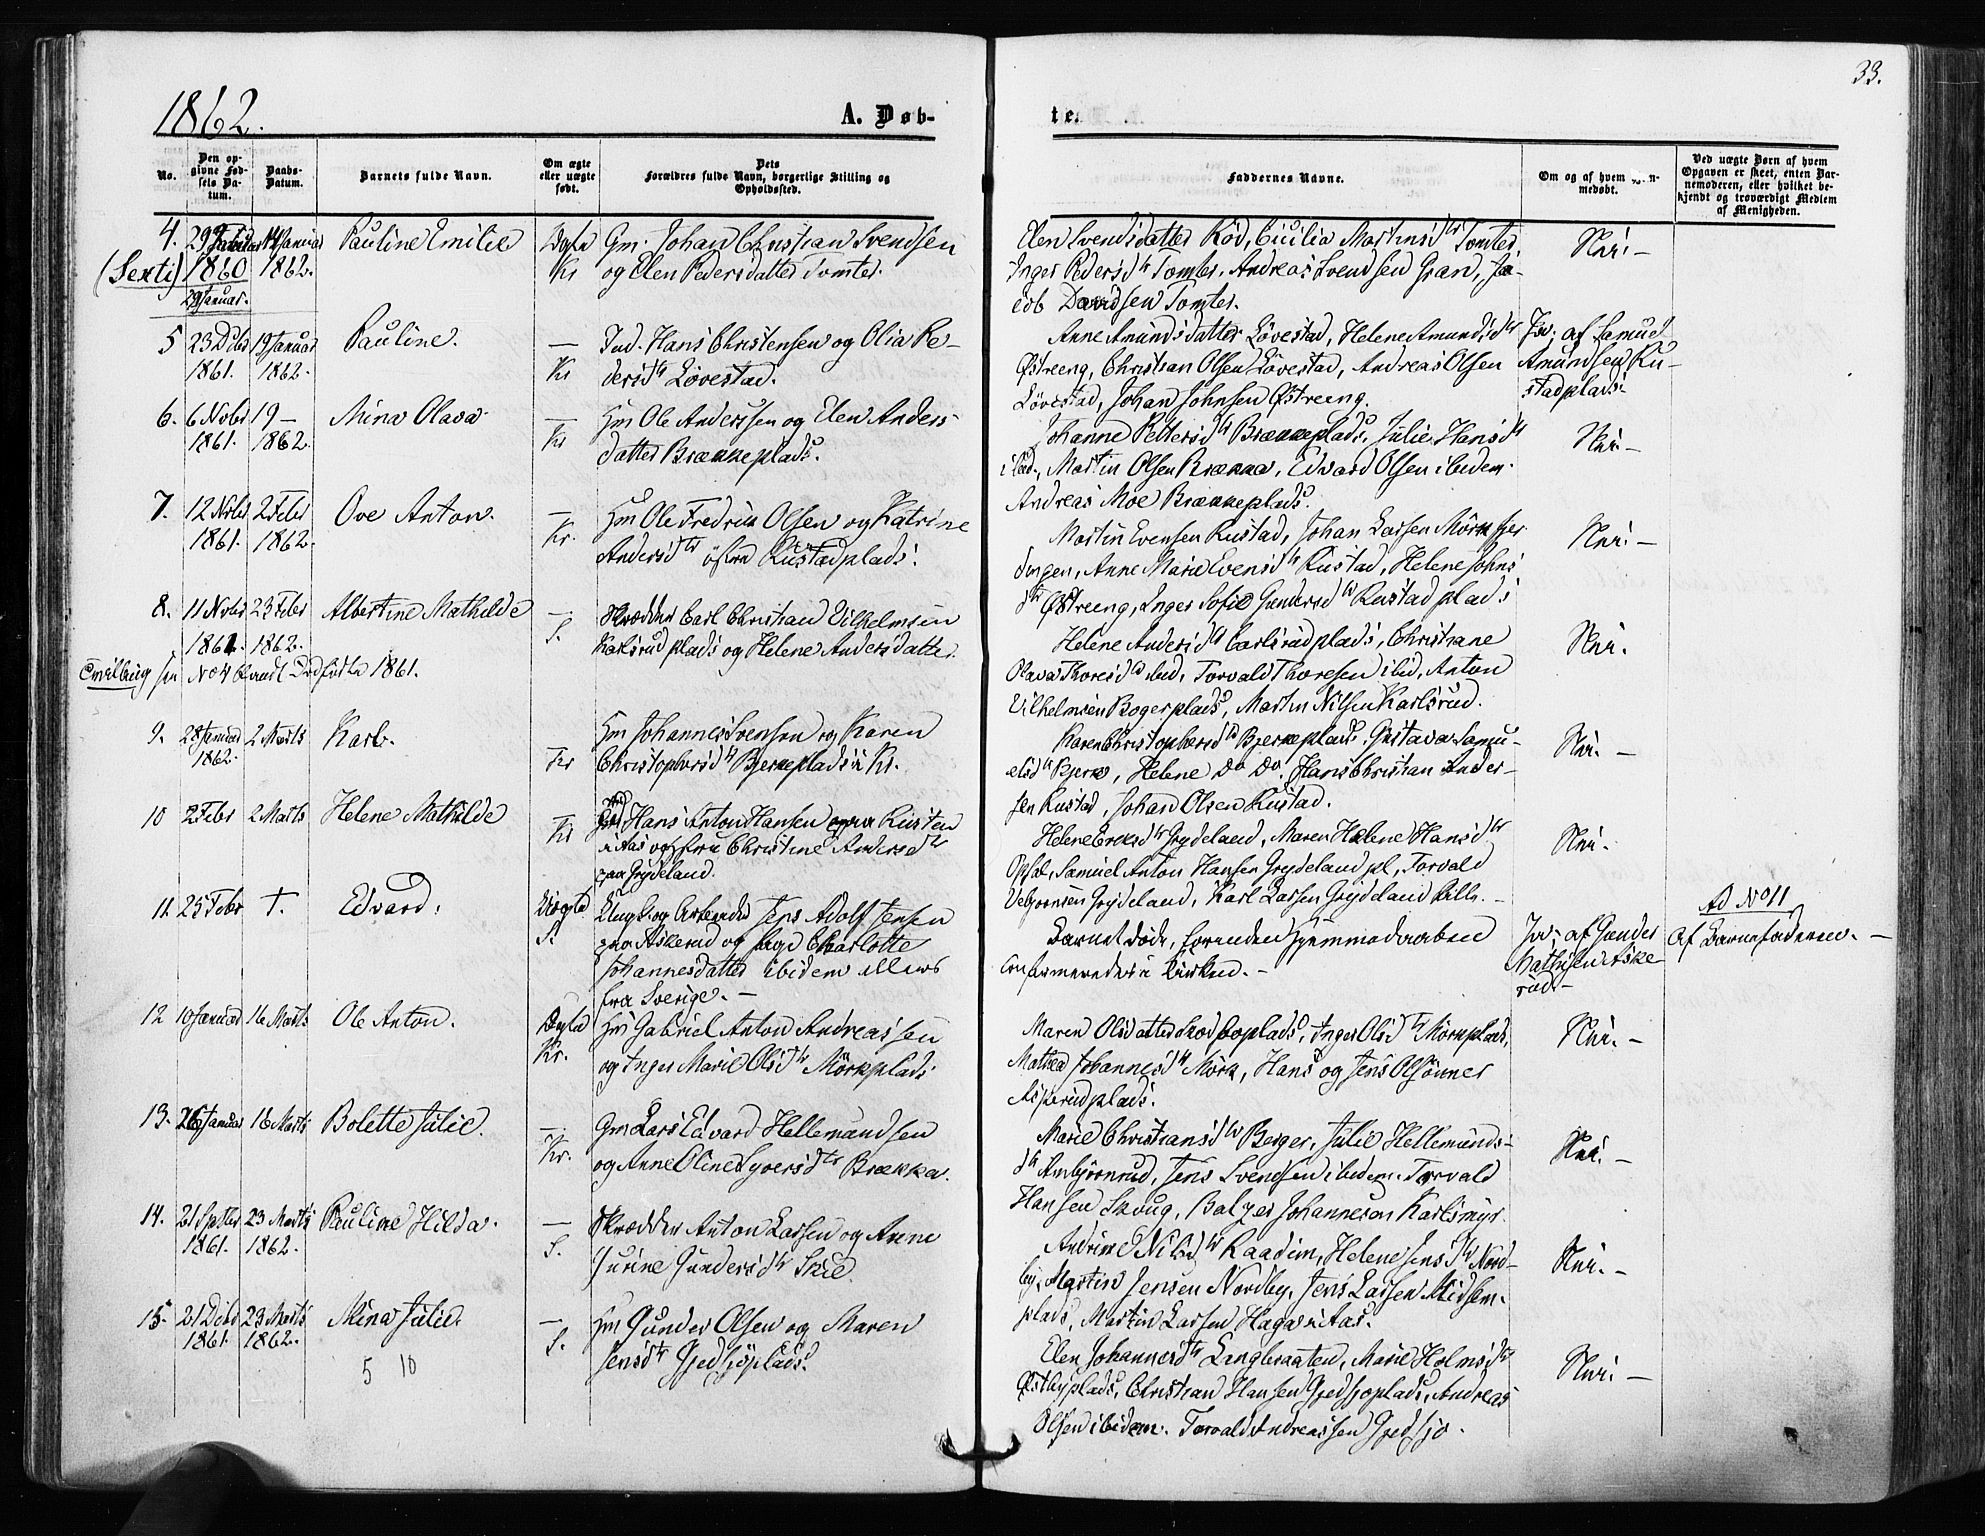 33.
1862.
A. Døb-
te.
No.
Den op-
givne Fød-
sels Da-
tum.
Daabs-
Datum.
Barnets fulde Navn.
Om ægte
eller uægte
født.
Dets
Forældres fulde Navn, borgerlige Stilling og
Opholdssted.
Faddernes Navne.
Om og af hvem
medøbt.
Ved uægte Børn af hvem
Opgaven er skeet, enten Bar-
nemoderen, eller hvilket be-
kjendt og troværdigt Medlem
af Menigheden.
4.
1860
29 Januar.
Januar
1862.
Pauline Emilie
Ægte
Kr
Gm. Johan Christian Svendsen
og Elen Pedersdatter Tomter.
Elen Svendsdatter Rød, Cicilia Martinsdtr Tomter,
Inger Pedersdtr Tomter, Andreas Svendsen Gran, Ja-
cob Davidsen Tomter.
5
23 Dcbr
1861.
19 Januar
1862.
Pauline.
—
Kr
Ind. Hans Christensen og Olia Pe-
dersdtr Løvestad.
Anne Amundsdatter Løvestad, Helene Amundsdtr
Østreeng, Christian Olsen Løvestad, Andreas Olsen
Løvestad, Johan Johnsen Østreeng.
Jw. af Samuel
Amundsen Ru-
stadplads.
6.
6 Novbr
1861.
19 —
1862.
Mina Olava
—
Kr
Hm Ole Anderssen og Elen Anders-
datter Brækkeplads.
Johanne Pettersdtr Brækkeplads, Julie Hansdtr
ibid., Martin Olsen Brække, Edvard Olsen ibidem.
Andreas Moe Brækkeplads.
7.
12 Novbr
1861.
2 Febr
1862.
Ove Anton.
—
Kr.
Hm Ole Fredrik Olsen og Katrine
Andersdtr østre Rustadplads.
Martin Evensen Rustad, Johan Larsen Mørk
Anne Marie Evensdtr Rustad, Helene Johns-
dtr Østreeng, Inger Sofie Gundersdtr Rustadplads
8.
11 Novbr
1861.
23 Febr
1862.
Albertine Mathilde
—
S.
Skrædder Carl Christian Vilhelmsen
Karlsrudplads og Helene Andersdatter.
Helene Andersdtr Carlsrudplads, Christiane
Olava Thoresdtr ibid, Torvald Thoresen ibid, Anton
Vilhelmsen Bogerplads, Martin Nilsen Karlsrud.
Tvilling No 4 blandt Dødfødte 1861.
9.
28 Januar
1862.
2 Marts
Karl.
Kr
Hm Johannes Svensen og Karen
Christophersdtr Bjerkeplads i Kr.
Karen Christophersdtr Bjerkeplads, Gustava Samu-
elsdtr Bjerke, Helene Do Do. Hans Christian Ander-
sen Rustad, Johan Olsen Rustad.
10
2 Febr
2 Marts
Helene Mathilde
—
Kr
Hans Anton Hansen
i Aas og Christine Andersdtr
paa Grydeland.
Helene Ericsdtr Grydeland, Maren Helene Hansdtr
Opsal, Samuel Anton Hansen Grydeland pl, Torvald
Grydeland, Karl Larsen Grydeland
11.
25 Febr
†.
Edvard.
Uægte
S.
Ungk. og Arbeider Jens Adolf Jensen
paa Askerud og Pige Charlotte
Johannesdatter ibidem ellers
fra Sverige. —
Barnet døde, forinden Hjemmedaaben
confirmeredes i Kirken. —
Jw. af Gunder
Mathisen Aske-
rud. —
Ad No 11
Af Barnefaderen. —
12
10 Januar
16 Marts
Ole Anton.
Ægte
Kr.
Hm Gabriel Anton Andreassen
og Inger Marie Olsdtr Mörkplads
Maren Olsdatter Inger Olsdtr Mörkplads,
Mathea Johannesdtr Mörk, Hans og Jens Olsönner
Askerudplads.
13.
26 Januar
16 Marts
Bolette Julie.
—
Kr.
Gm Lars Edvard Hellemundsen
og Anne Oline Syversdtr Brække.
Marie Christiansdtr Berger, Julie Hellemunds-
dtr Jens Svendsen ibidem. Torvald
Hansen Skoug, Balzer Johannesen Karlsmyr.
14.
21 Septbr
1861.
23 Marts
1862.
Pauline Hilda.
—
S.
Skrædder Anton Larsen og Anne
Jurine Gundersdtr Skie.
Andrine Nilsdtr Raadim, Helene Jensdtr Nord-
by, Martin Jensen Nordby, Jens Larsen Midsem-
plads, Martin Larsen Haga i Aas.
15
21 Dcbr
1861.
23 Marts
1862.
Mina Julie.
—
S.
Hm Gunder Olsen og Maren
Jensdtr Gjedsjöplads.
Elen Johannesdtr Lingleraaten, Marie Holmsdtr
Østbyplads, Christian Hansen Gjedsjoplads, Andreas
Olsen ibidem. Torvald Andreassen Gjedsjo.
5 10